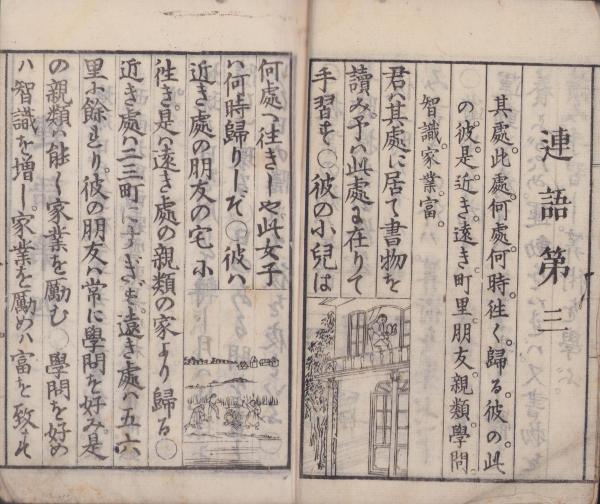 連語第三
其處。此處。何處。何時。往く。歸る。彼の。此
の。彼。是。近き。遠き。町。里。朋友。親類。學問。
智識。家業。富。
君ハ其處に居て書物を
讀み。予ハ此處に在りて
手習す○彼の小兒は
何處へ往きしや此女子
ハ何時歸りしぞ○彼ハ
近き處の朋友の宅に
往き。是ハ遠き處の親類の家より歸る○
近き處ハ二三町にすぎず。遠き處ハ五六
里に餘まり。彼の朋友ハ常に學問を好み是
の親類ハ能く家業を勵む○學問を好め
ハ智識を増し。家業を勵めハ富を致す